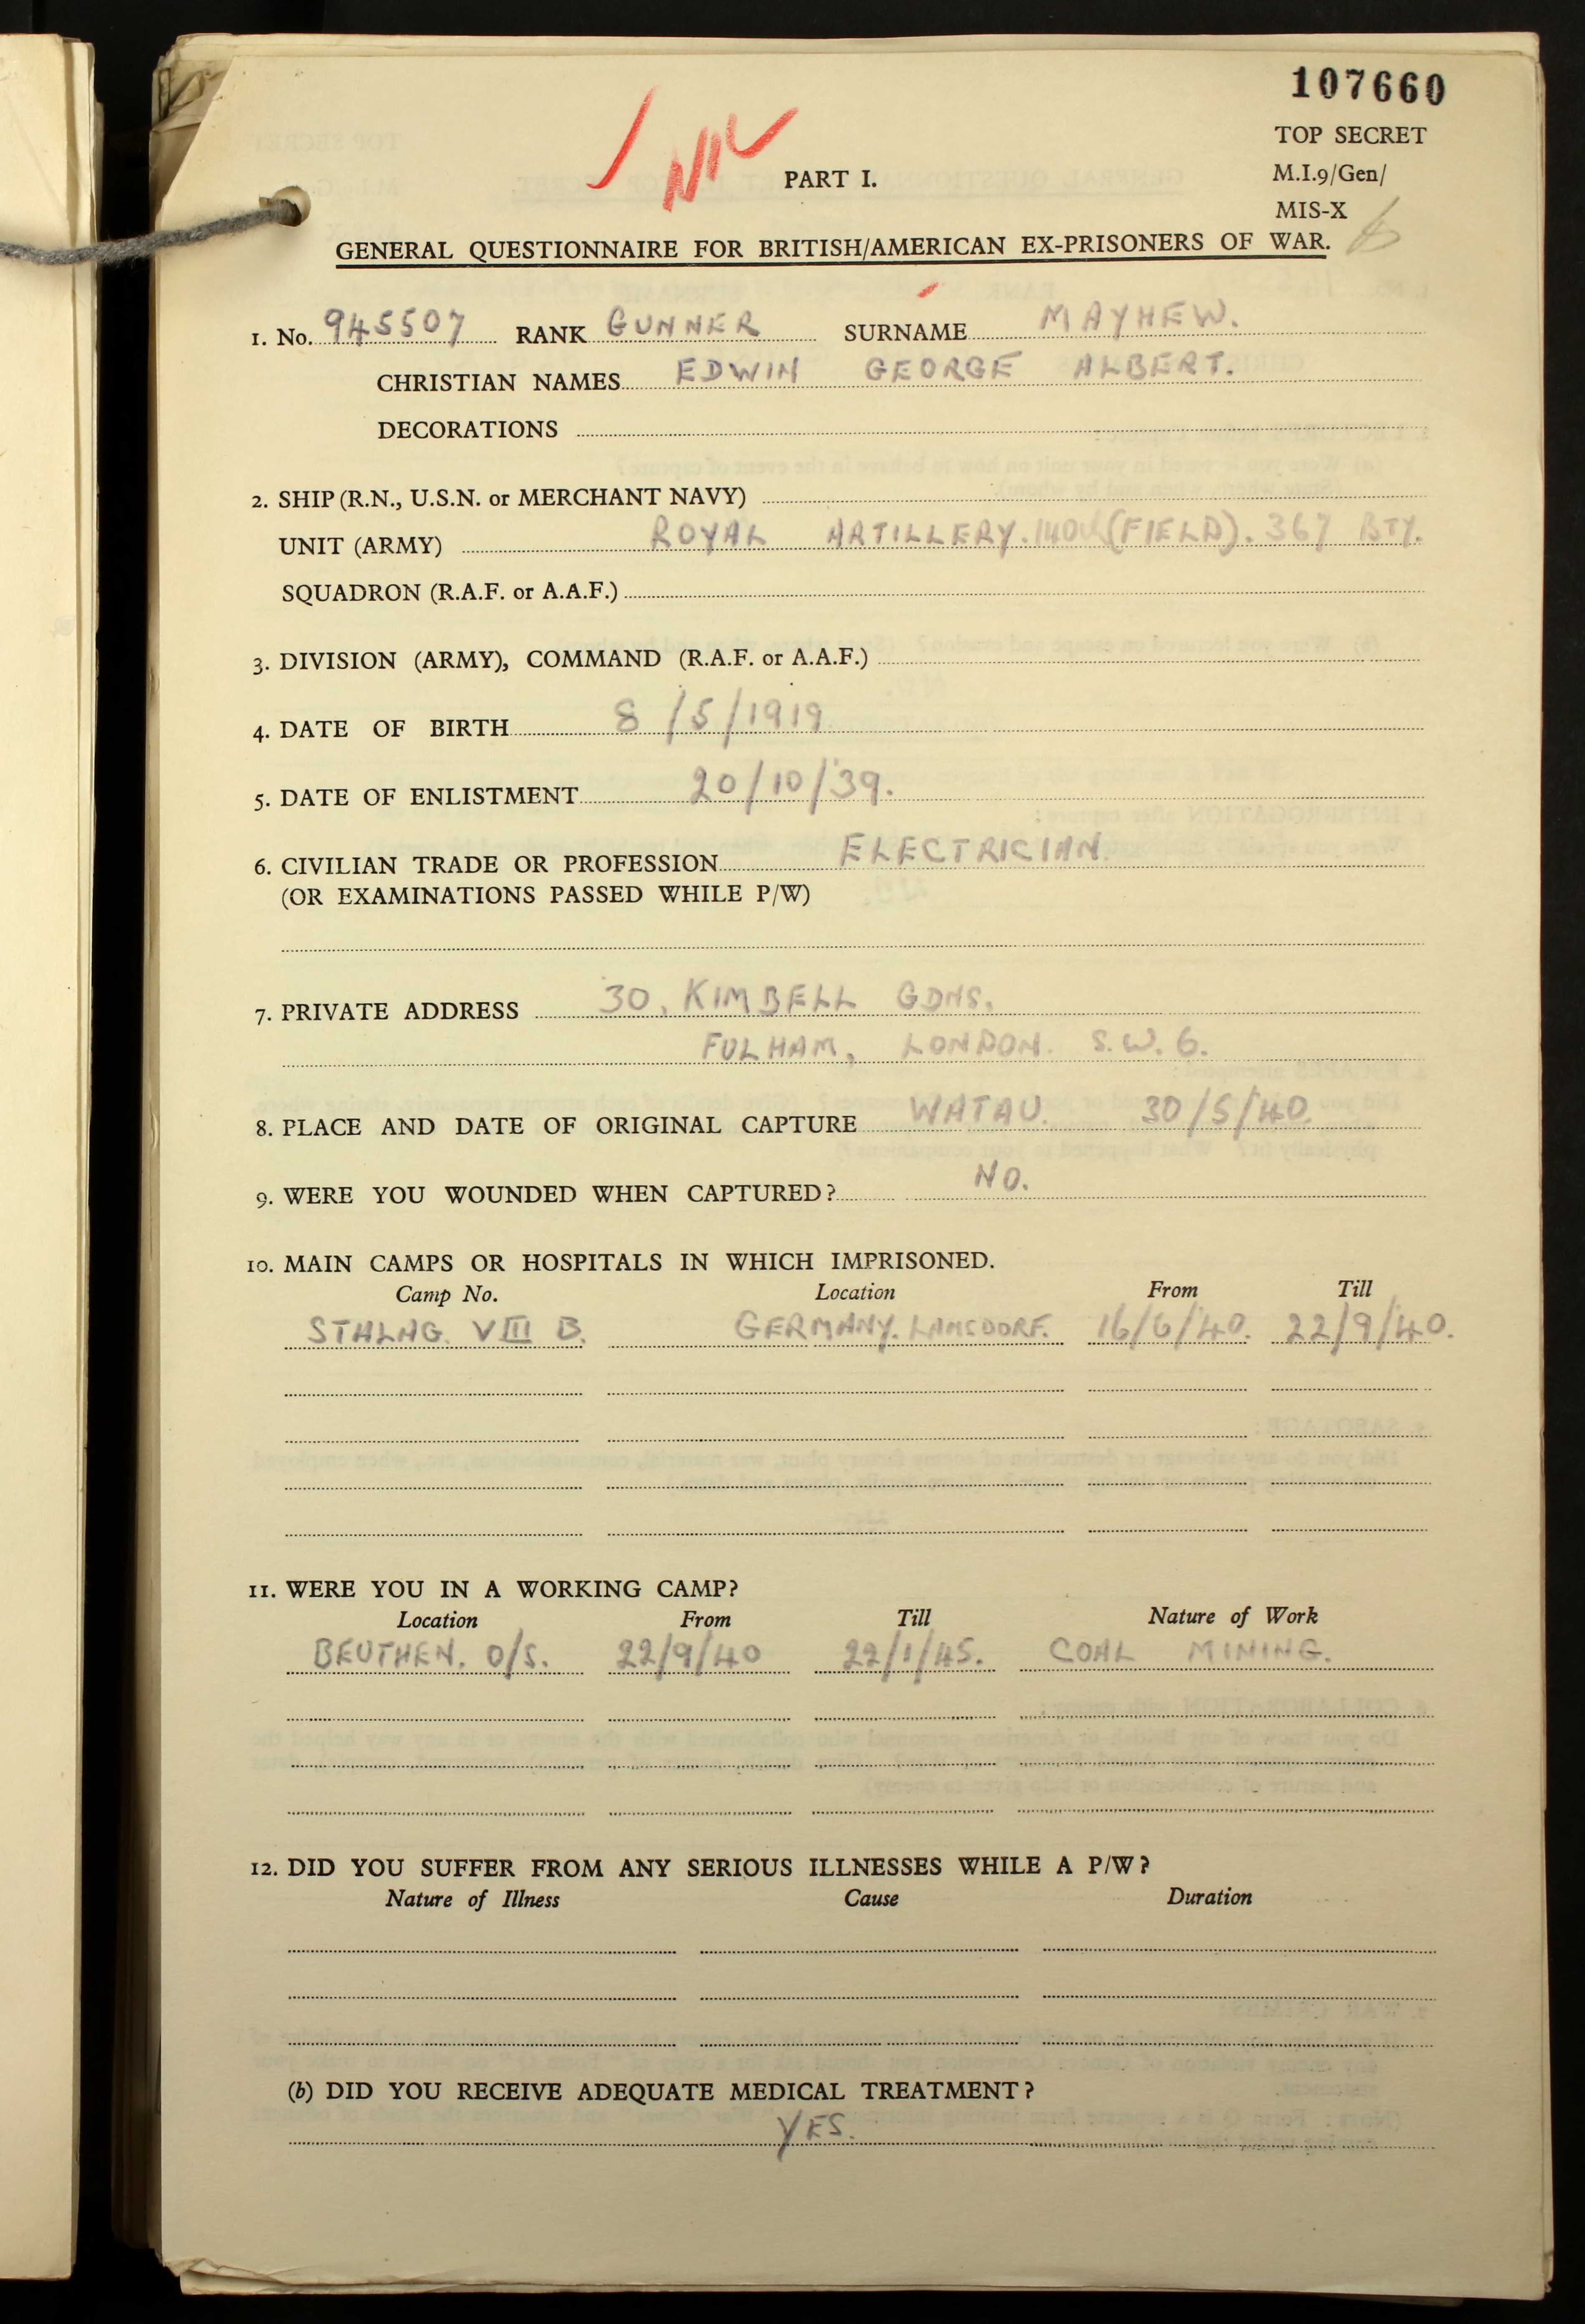 107660
TOP SECRET
M.I.9/Gen/
MIS-X
NIL
PART I.
GENERAL QUESTIONNAIRE FOR BRITISH/AMERICAN EX-PRISONERS OF WAR.
1. No. 945507 RANK GUNNER SURNAME MAYHEW.
CHRISTIAN NAMES EDWIN GEORGE ALBERT.
DECORATIONS
2. SHIP (R.N., U.S.N. or MERCHANT NAVY)
UNIT (ARMY) ROYAL ARTILLERY. 140 (FIELD). 367 BTY.
SQUADRON (R.A.F. or A.A.F.)
3. DIVISION (ARMY), COMMAND (R.A.F. or A.A.F.)
4. DATE OF BIRTH 8/5/1919
5. DATE OF ENLISTMENT 20/10/39.
6. CIVILIAN TRADE OR PROFESSION ELECTRICIAN.
(OR EXAMINATIONS PASSED WHILE P/W)
7. PRIVATE ADDRESS 30, KIMBELL GDNS.
FULHAM, LONDON. S.W.6.
8. PLACE AND DATE OF ORIGINAL CAPTURE WATAU. 30/5/40.
9. WERE YOU WOUNDED WHEN CAPTURED? NO.
10. MAIN CAMPS OR HOSPITALS IN WHICH IMPRISONED.
Camp No. Location From Till
STALAG. VIII B. GERMANY. LAMSDORF. 16/6/'40. 22/9/'40.
11. WERE YOU IN A WORKING CAMP?
Location From Till Nature of Work
BEUTHEN. O/S. 22/9/40 22/1/45. COAL MINING.
12. DID YOU SUFFER FROM ANY SERIOUS ILLNESSES WHILE A P/W?
Nature of Illness Cause Duration
(b) DID YOU RECEIVE ADEQUATE MEDICAL TREATMENT?
YES.